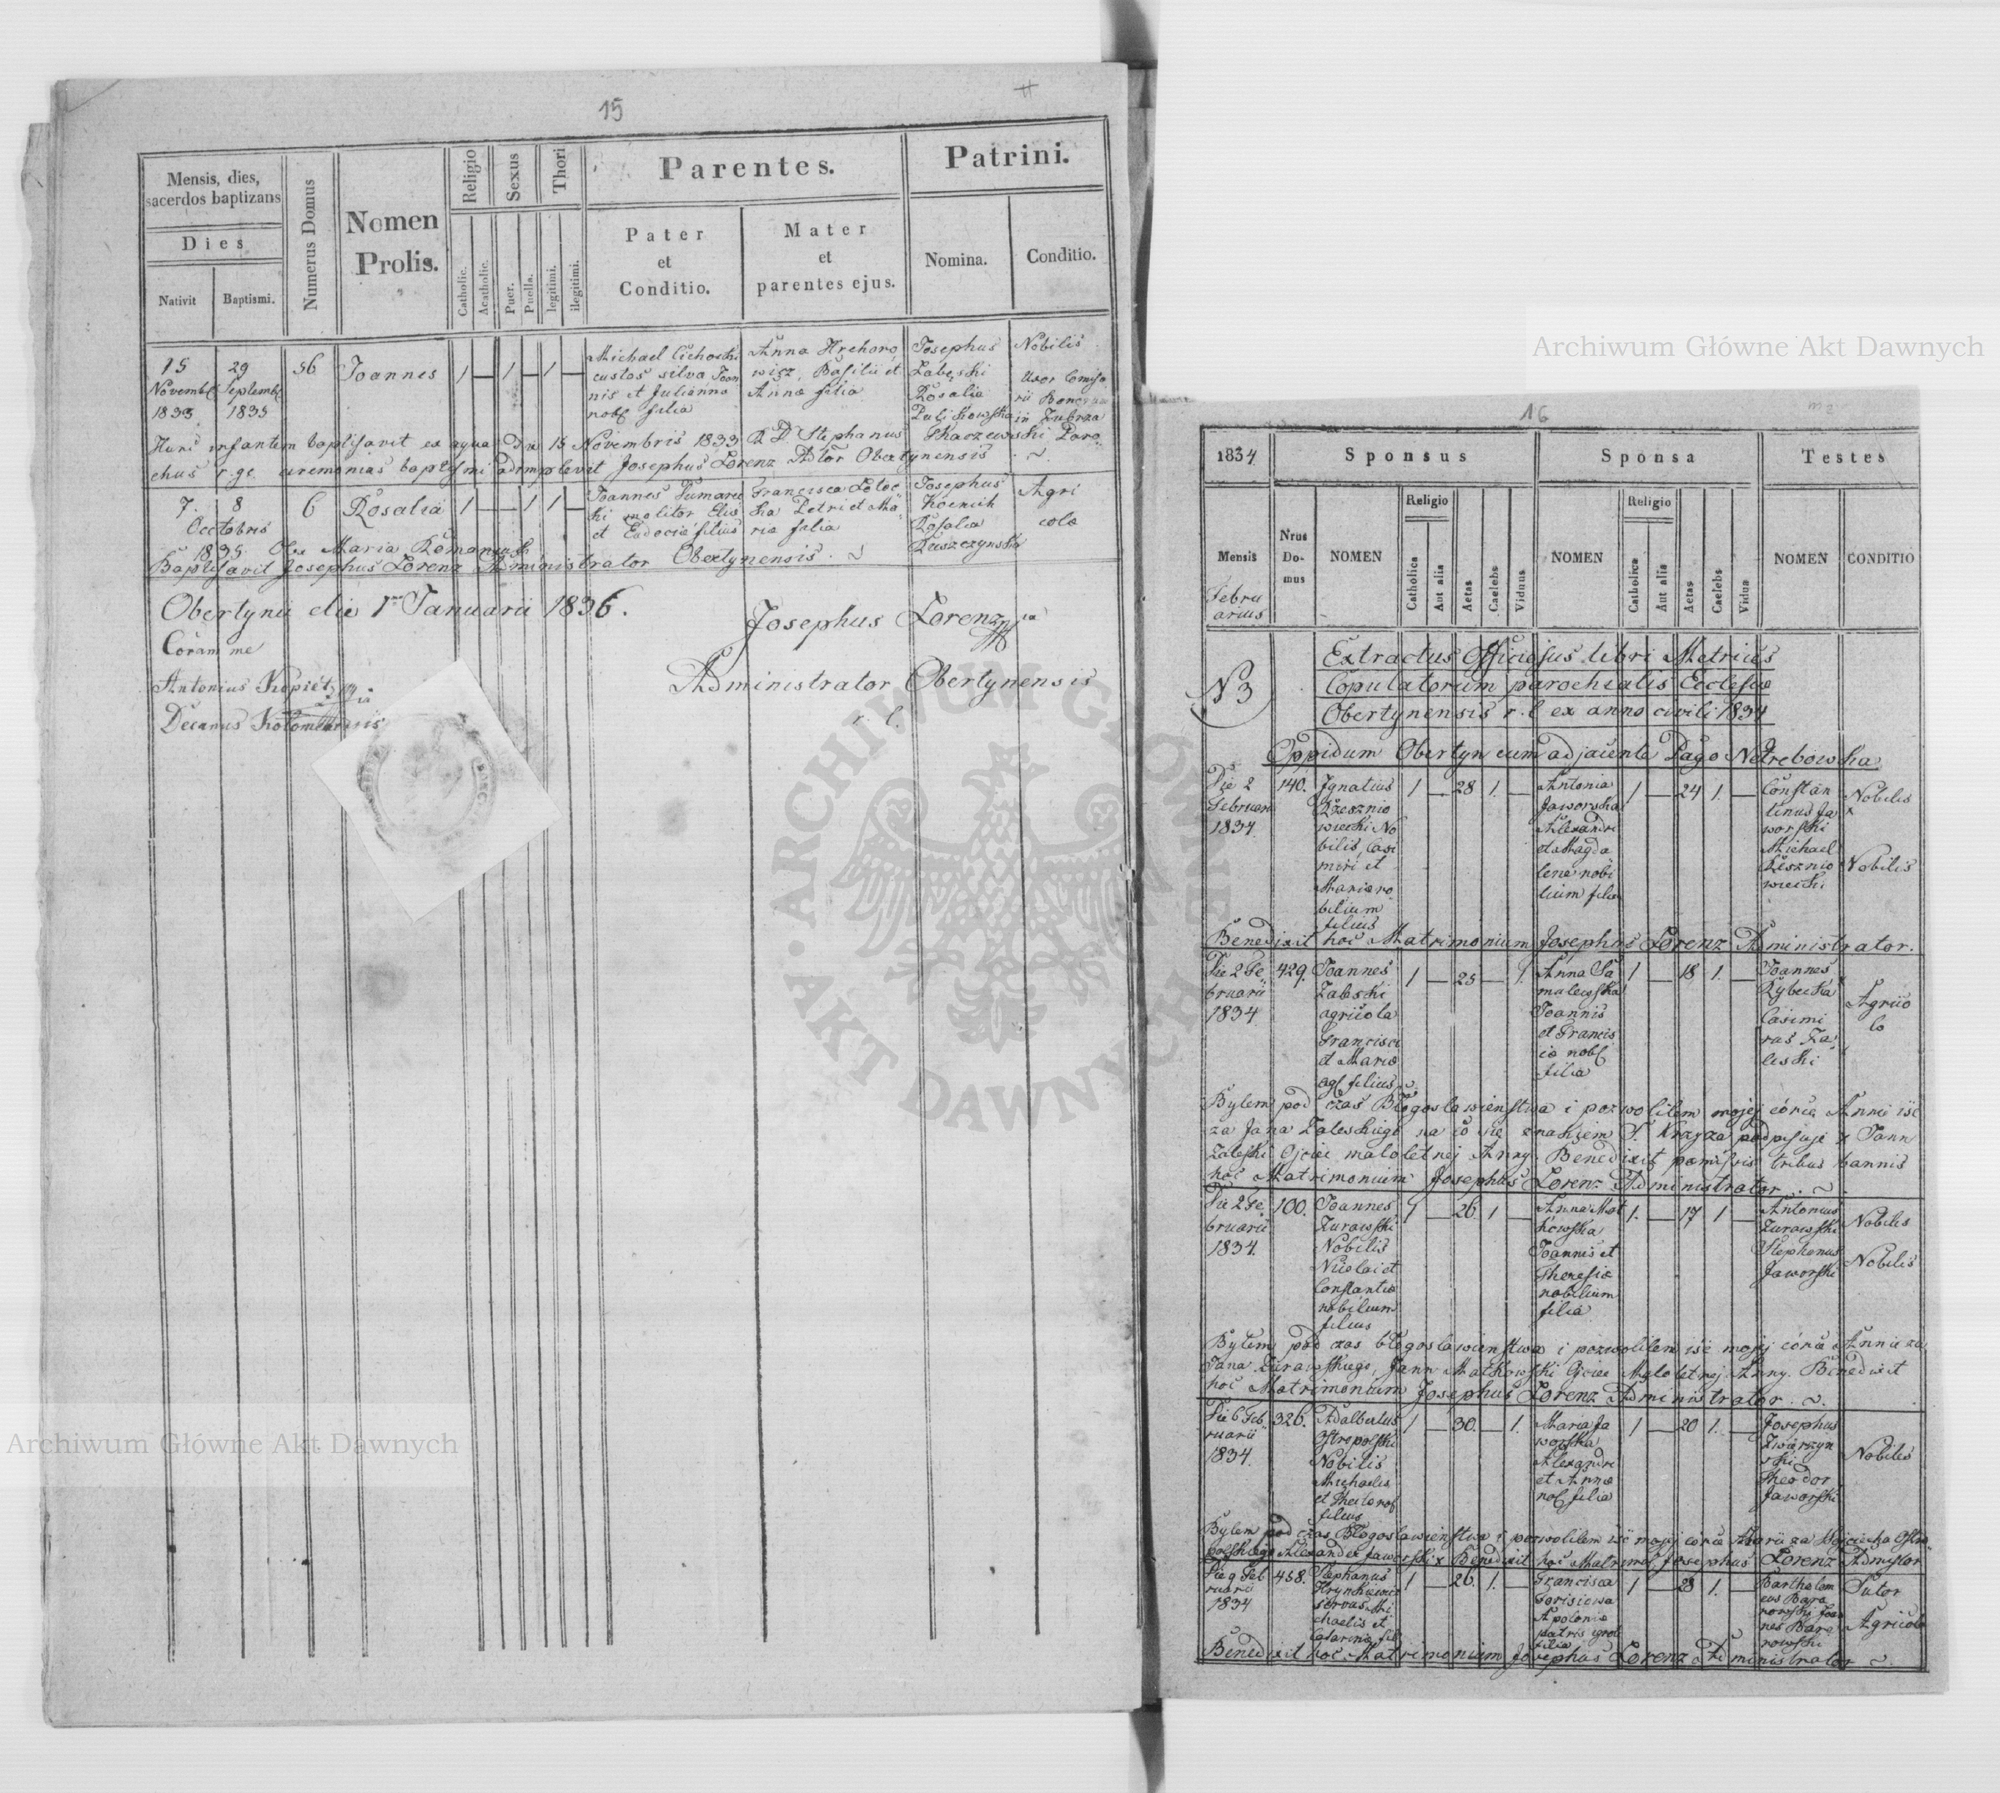 15
Mensis, dies,
sacerdos baptizans
Dies
Nativit
Baptismi.
Numerus Domus
Nomen
Prolis.
Religio
Catholic.
Acatholic.
Sexus
Puer.
Puella.
Thori
legitimi.
ilegitimi.
Parentes.
Pater
et
Conditio.
Mater
et
parentes ejus.
Patrini.
Nomina.
Conditio.
15
Novembr
1833
29
Septembr
1835
56
Joannes
1 — 1 — 1 —
Michael Cichocki
custos silva Joan
nis et Julianna
nob filia
Anna Hrehoro
wicz, Basilii et
Anna filia
Josephus
Zaleski
Rosalia
Nobilis
Uxor
Hunc infantem baptisavit ex aqua Die 15 Novembris 1833 R. D. Stephanus Tkaczewski Paro
chus r. gc. ceremonias baptismi adimplevit Josephus Lorenz Adtor Obertynensis
7. 8
Octobris
1835
6
Rosalia
1 — — 1 1 —
Joannes
ki molitor Elia
et Eudocia filius
Francisca
ka Petri et Ma
ria filia
Josephus
Rosalia
Ruszczynska
Agri
colæ
Obs Maria Romaniuk
Baptisavit Josephus Lorenz Administrator Obertynensis
Obertynii die 1 Januarii 1836.
Coram me
Antonius Kopietz
Decanus Kolomeensis
Josephus Lorenz
Administrator Obertynensis
r. l.
16
1834
Sponsus
Sponsa
Testes
Mensis
Febru
arius
Nrus
Do-
mus
NOMEN
Religio
Catholica
Aut alia
Aetas
Caelebs
Viduus
NOMEN
Religio
Catholica
Aut alia
Aetas
Caelebs
Vidua
NOMEN
CONDITIO
N 3
Extractus Officiosus libri Metrices
Copulatorum parochialis Ecclesiæ
Obertynensis r. l. ex anno civili 1834
Oppidum Obertyn cum adjacente Pago Netrebowka
Die 2
Februarii
1834
140.
Ignatius
Rzesznio
wiecki No
bilis, Casi
miri et
Maria no
bilium
filius
1 — 28 1. —
Antonia
Jaworska
Alexandri
et Magda
lena nobi
lium filia
1 — 24 1. —
Constan
tinus Ja
worski
Michael
Rzesznio
wiecki
Nobilis
Nobilis
Benedixit hoc Matrimonium Josephus Lorenz Administrator.
Die 2 Fe
bruarii
1834
429.
Joannes
Zaleski
agricola
Francisci
et Mariæ
agr filius
1 — 25 — 1.
Anna Sa
mulewska
Joannis
et Francis
cæ nob
filia
1 — 18 1. —
Joannes
Rybecka
Casimi
rus Za
leski
Agrico
læ
Byłem pod czas Błogosławienstwa i pozwoliłem mojej córce Annie iść
za Jana Zaleskiego na co się znakiem S. Krzyża podpisuje x Jann
Zaleski Ojciec maloletnej Anny. Benedixit pamissis tribus bannis
hoc Matrimonium Josephus Lorenz Administrator.
Die 2 Fe
bruarii
1834.
100.
Joannes
Zurawski
Nobilis
Nicolai et
Constantiæ
nobilium
filius
1 — 26 1 —
Anna Mat
kowska
Joannis et
Theresiæ
nobilium
filia
1. — 17 1 —
Antonius
Zurawski
Stephanus
Jaworski
Nobilis
Nobilis
Byłem pod czas błogosławienstwa i pozwoliłem iść mojej córce Annie za
Jana Zurawskiego, Jann Matkowski Ojciec Maloletnej Anny. Benedixit
hoc Matrimonium Josephus Lorenz Administrator.
Die 6 Feb
ruarii
1834.
326.
Adalbertus
Ostrepolski
Nobilis
Michaelis
et nob
filius
1 — 30. — 1.
Maria Ja
worska
Alexandri
et Annæ
nob filia
1 — 20 1. —
Josephus
Zwarzyn
ski
Theodor
Jaworski
Nobilis
Byłem pod czas Błogosławienstwa i pozwoliłem iść mojej córce Marii za Wojciecha Ostre
polskiego Alexander Jaworski x Benedixit hoc Matrim Josephus Lorenz Admstor
Die 9 Feb
ruarii
1834
458.
Stephanus
Hrynkiewicz
servus Mi
chaelis et
Catarina fil
1 — 26. 1. —
Francisca
Apolonia
patris ignoti
filia
1 — 28 1. —
Bartholom
eus Bara
nowski Joan
nes Bara
nowski
Sutor
Agricola
Benedixit hoc Matrimonium Josephus Lorenz Administrator
Archiwum Główne Akt Dawnych
Archiwum Główne Akt Dawnych
ARCHIWUM GŁÓWNE AKT DAWNYCH